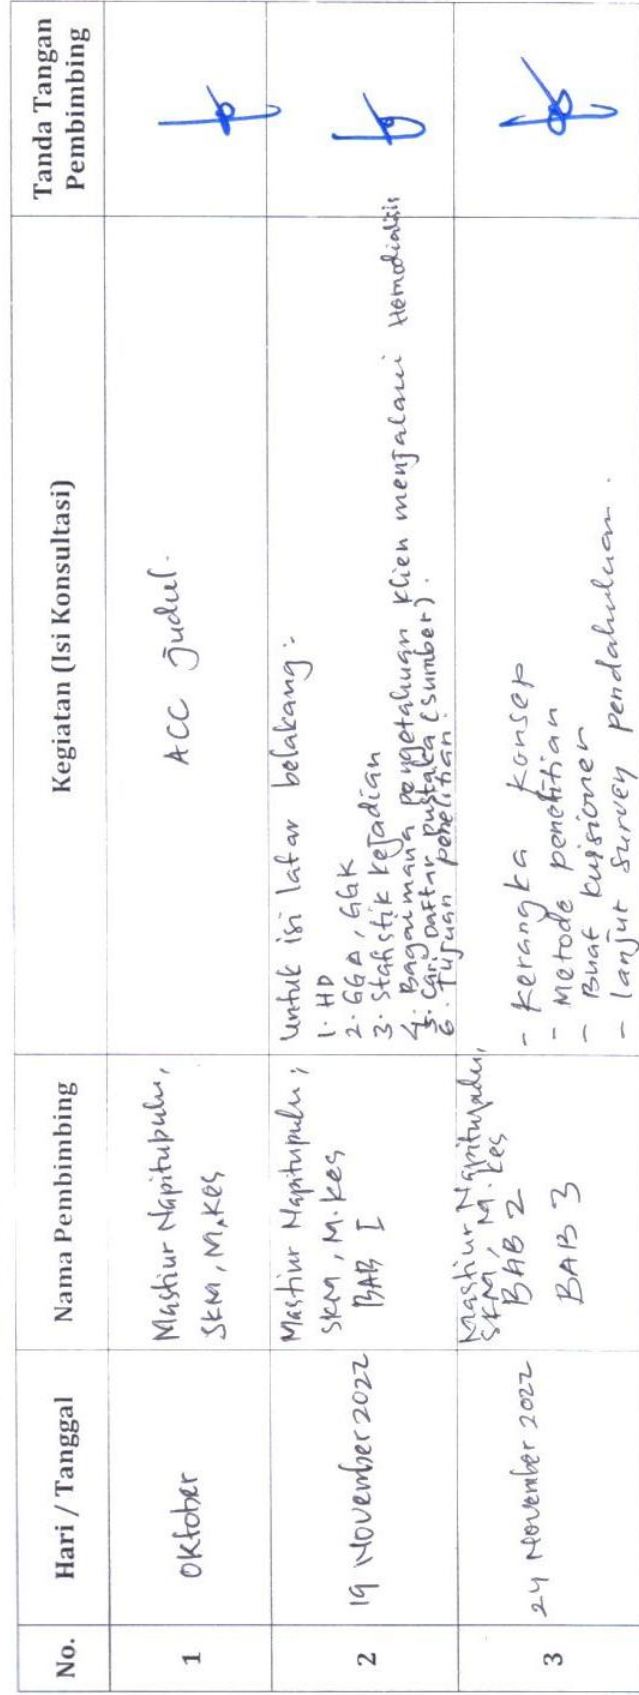 No.
Hari / Tanggal
Nama Pembimbing
Kegiatan (Isi Konsultasi)
Tanda Tangan
Pembimbing
1
Oktober
Mastiur Napitupulu,
SKM, M.Kes
ACC Judul.
2
19 November 2022
Mastiur Napitupulu,
SKM, M.Kes
BAB I
Untuk isi latar belakang :
1. HD
2. GGA, GGK
3. Statistik kejadian
4. Bagaimana pengetahuan klien menjalani Hemodialisis
5. Cari Daftar Pustaka (sumber).
6. Tujuan penelitian.
3
24 November 2022
Mastiur Napitupulu,
SKM, M.Kes
BAB 2
BAB 3
- Kerangka Konsep
- Metode penelitian
- Buat kuisioner
- lanjut survey pendahuluan.